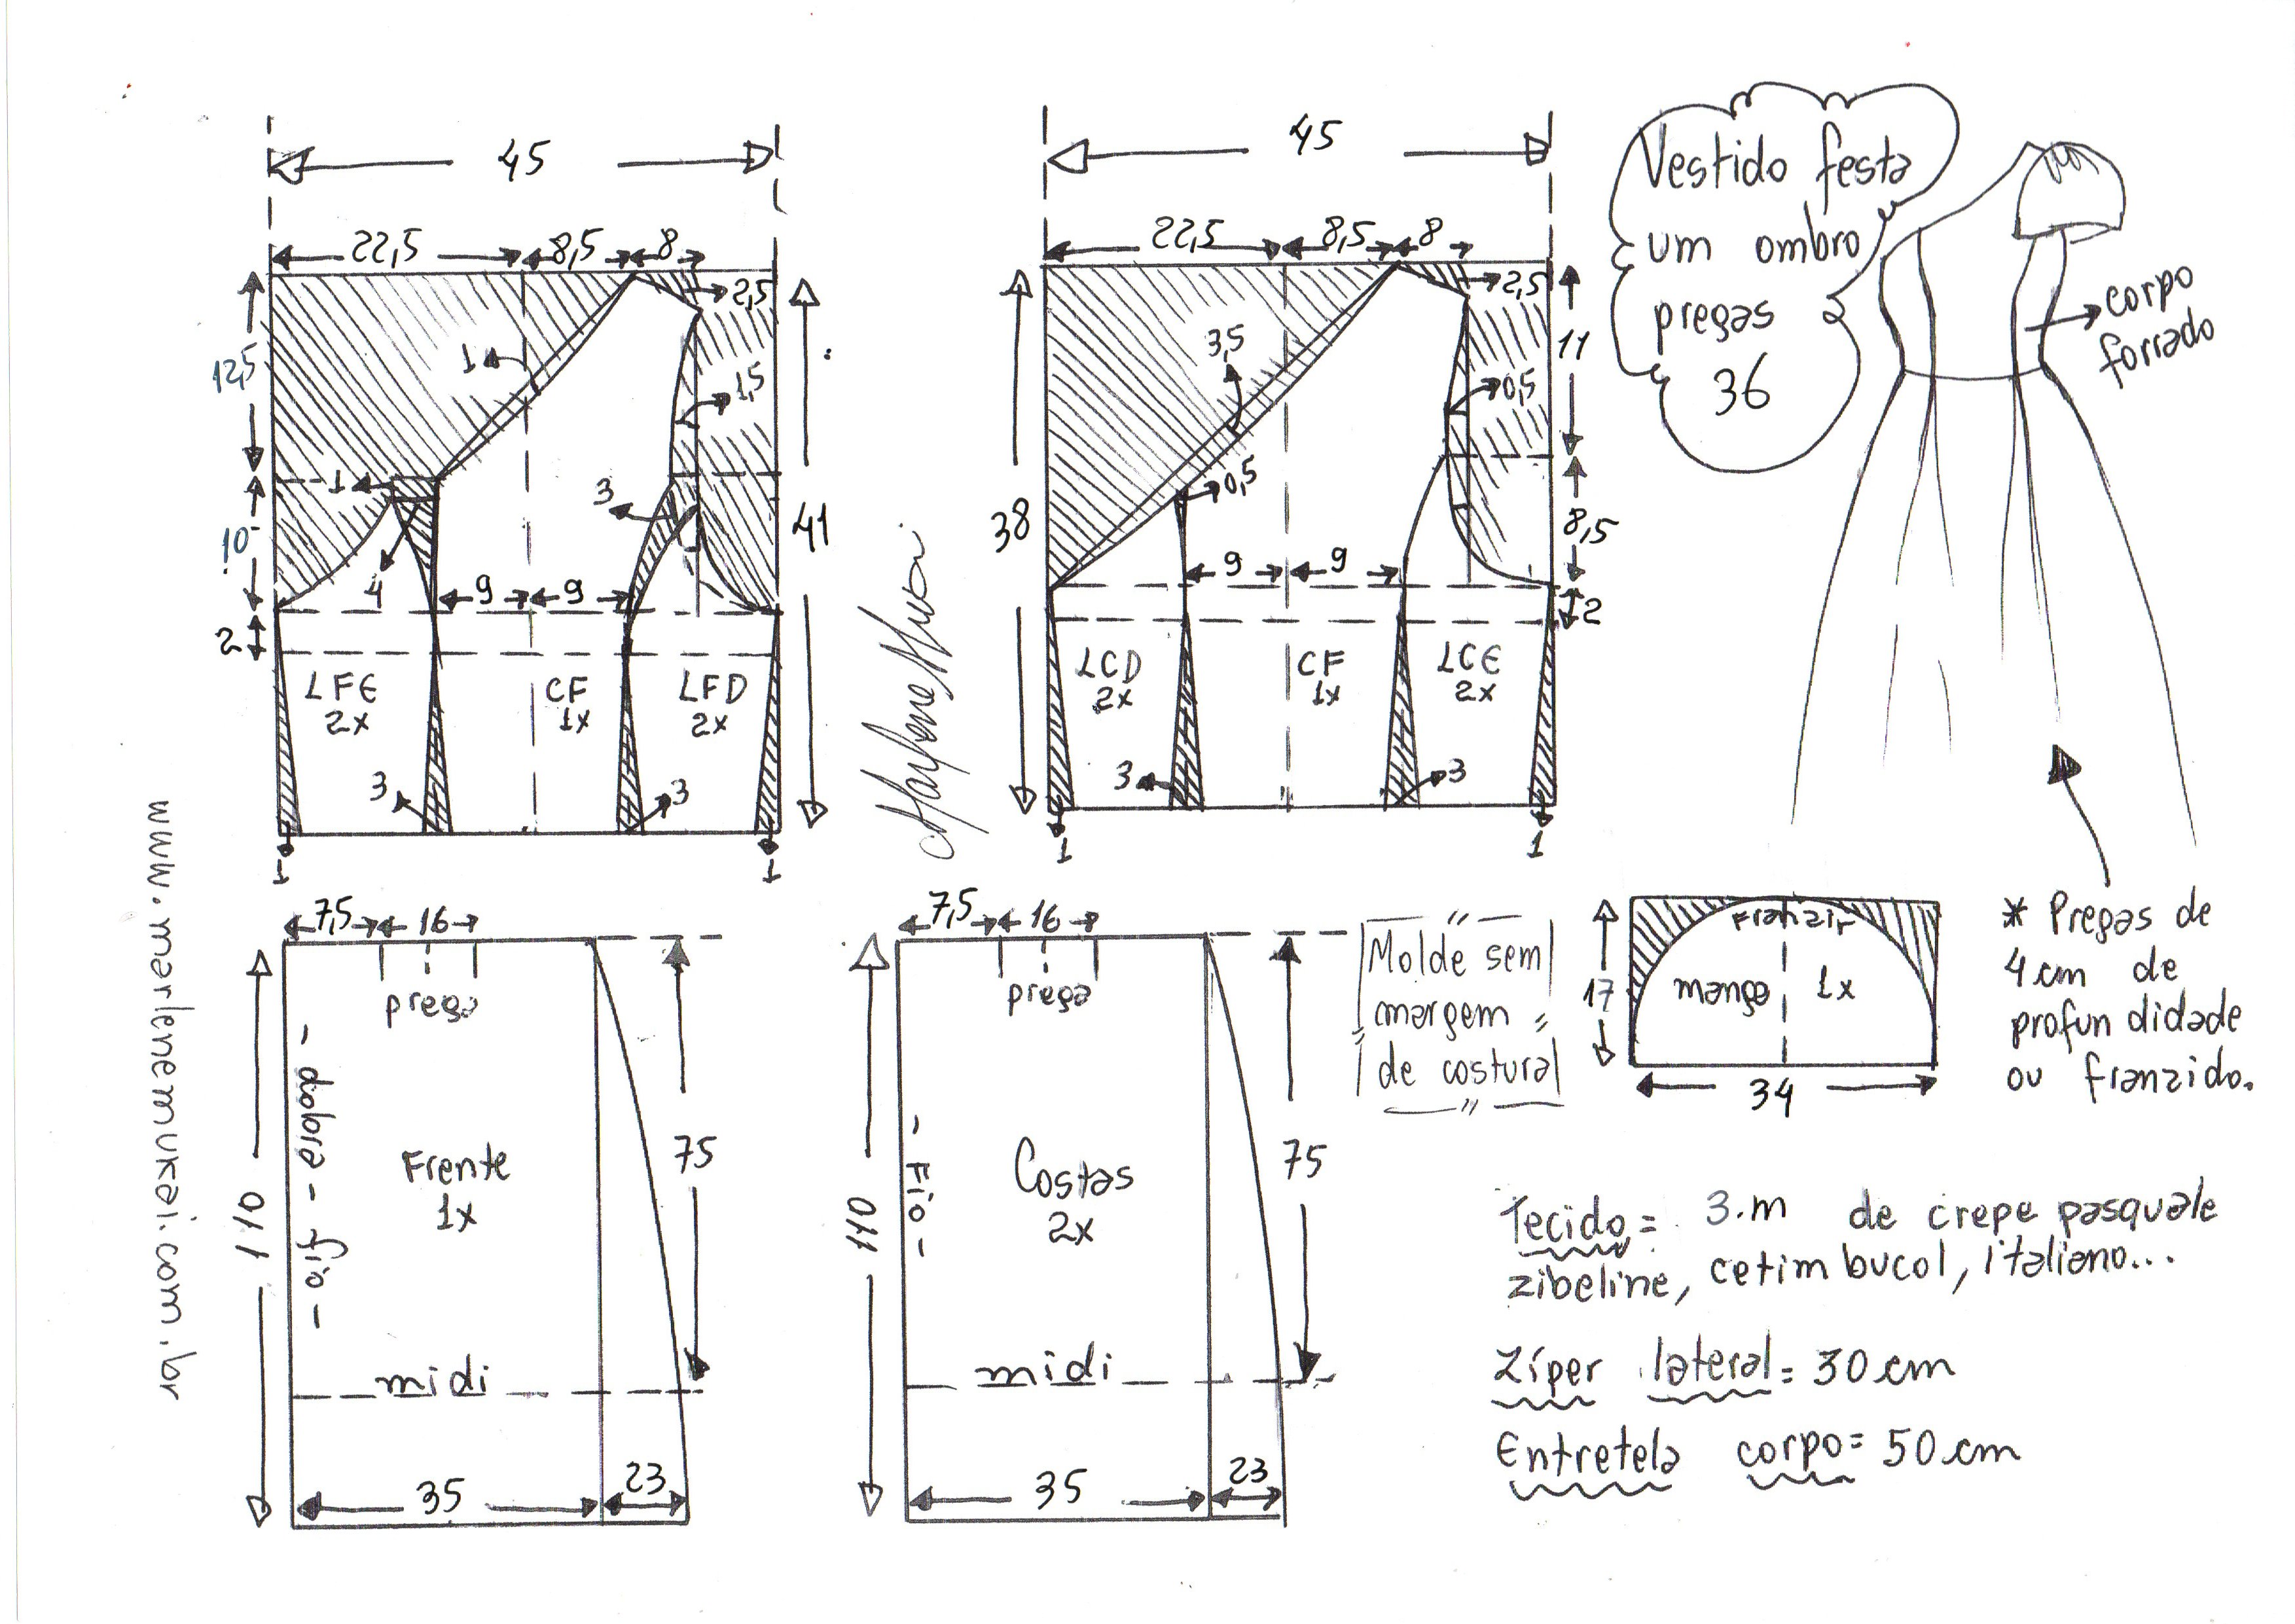 45
22,5
8,5
8
2,5
12,5
1
1,5
1
3
10
41
4
9
9
2
LFE
2x
CF
1x
LFD
2x
3
3
1
1
45
22,5
8,5
8
2,5
3,5
11
0,5
0,5
38
8,5
9
9
2
LCD
2x
CF
1x
LCE
2x
3
3
1
1
Marlene Mukai
Vestido festa
um ombro
pregas
36
corpo
forrado
www.marlenemukai.com.br
7,5
16
prega
110
- dobra - fio -
Frente
1x
75
midi
35
23
7,5
16
prega
110
- Fio -
Costas
2x
75
midi
35
23
Molde sem
margem
de costura
Franzir
manga 1x
17
34
* Pregas de
4 cm de
profun didade
ou franzido.
Tecido = 3.m de crepe pasquale
zibeline, cetim bucol, italiano...
Zíper lateral = 30 cm
Entretela corpo = 50 cm